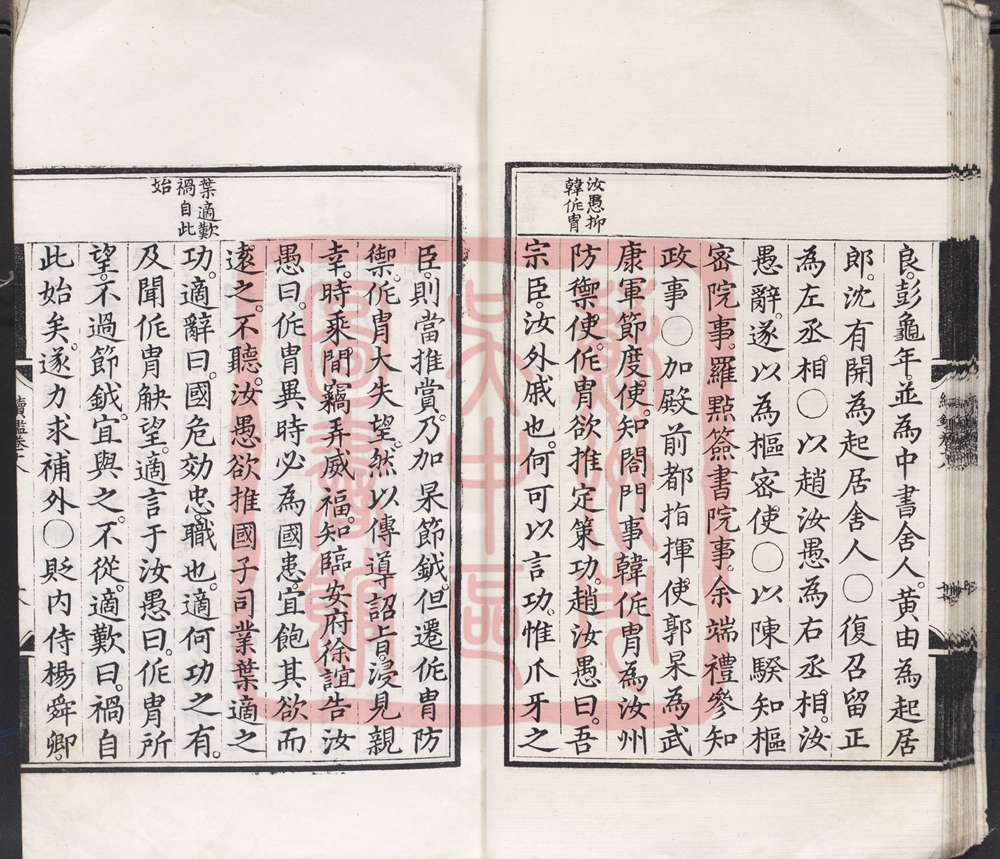 良。彭龜年並為中書舍人。黄由為起居
郎。沈有開為起居舍人〇復召留正
為左丞相〇以趙汝愚為右丞相。汝
愚辭。遂以為樞宻使〇以陳騤知樞
宻院事。羅㸃簽書院事。余端禮參知
政事〇加殿前都指揮使郭杲為武
康軍節度使。知閤門事韓侂胄為汝州
防禦使。侂胄欲推定策功。趙汝愚曰。吾
宗臣。汝外戚也。何可以言功。惟爪牙之
汝愚抑
韓侂胄
臣。則當推賞。乃加杲節鉞。但遷侂胄防
禦。侂胄大失望。然以傳導。詔㫖。浸見親
幸。時乘間竊弄威福。知臨安府徐誼告汝
愚曰。侂胄異時必為國患。宜飽其欲而
遠之。不聽。汝愚欲推國子司業葉適之
功。適辭曰。國危効忠職也。適何功之有。
及聞侂胄觖望。適言于汝愚曰。侂胄所
望。不過節鉞。宜與之。不從。適歎曰。禍自
此始矣。遂力求補外〇貶内侍楊舜卿。
葉適歎
禍自此
始
續鑑卷八